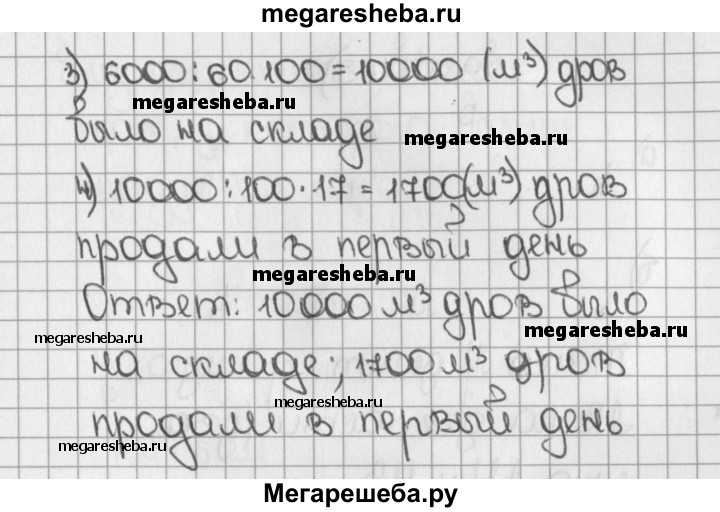 megaresheba.ru
3) 6000:60·100=10000 (м³) дров
megaresheba.ru
было на складе
megaresheba.ru
4) 10000:100·17=1700(м³) дров
продали в первый день
megaresheba.ru
Ответ: 10000 м³ дров было
megaresheba.ru
megaresheba.ru
на складе; 1700 м³ дров
megaresheba.ru
продали в первый день
megaresheba.ru
Мегарешеба.ру